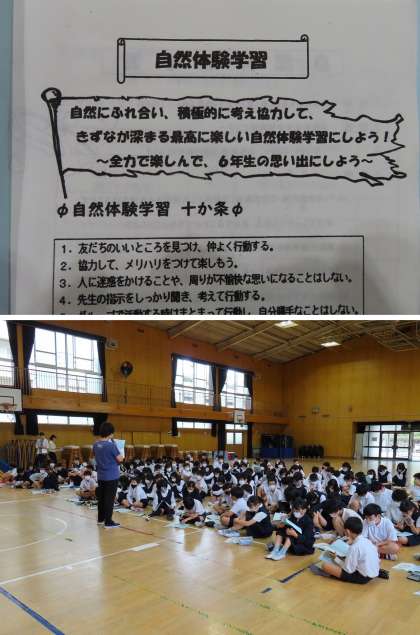 自然体験学習
自然にふれ合い、積極的に考え協力して、
きずなが深まる最高に楽しい自然体験学習にしよう！
～全力で楽しんで、6年生の思い出にしよう～
φ自然体験学習 十か条φ
1．友だちのいいところを見つけ、仲よく行動する。
2．協力して、メリハリをつけて楽しもう。
3．人に迷惑をかけることや、周りが不愉快な思いになることはしない。
4．先生の指示をしっかり聞き、考えて行動する。
5．グループで活動する時はまとまって行動し、自分勝手なことはしない。